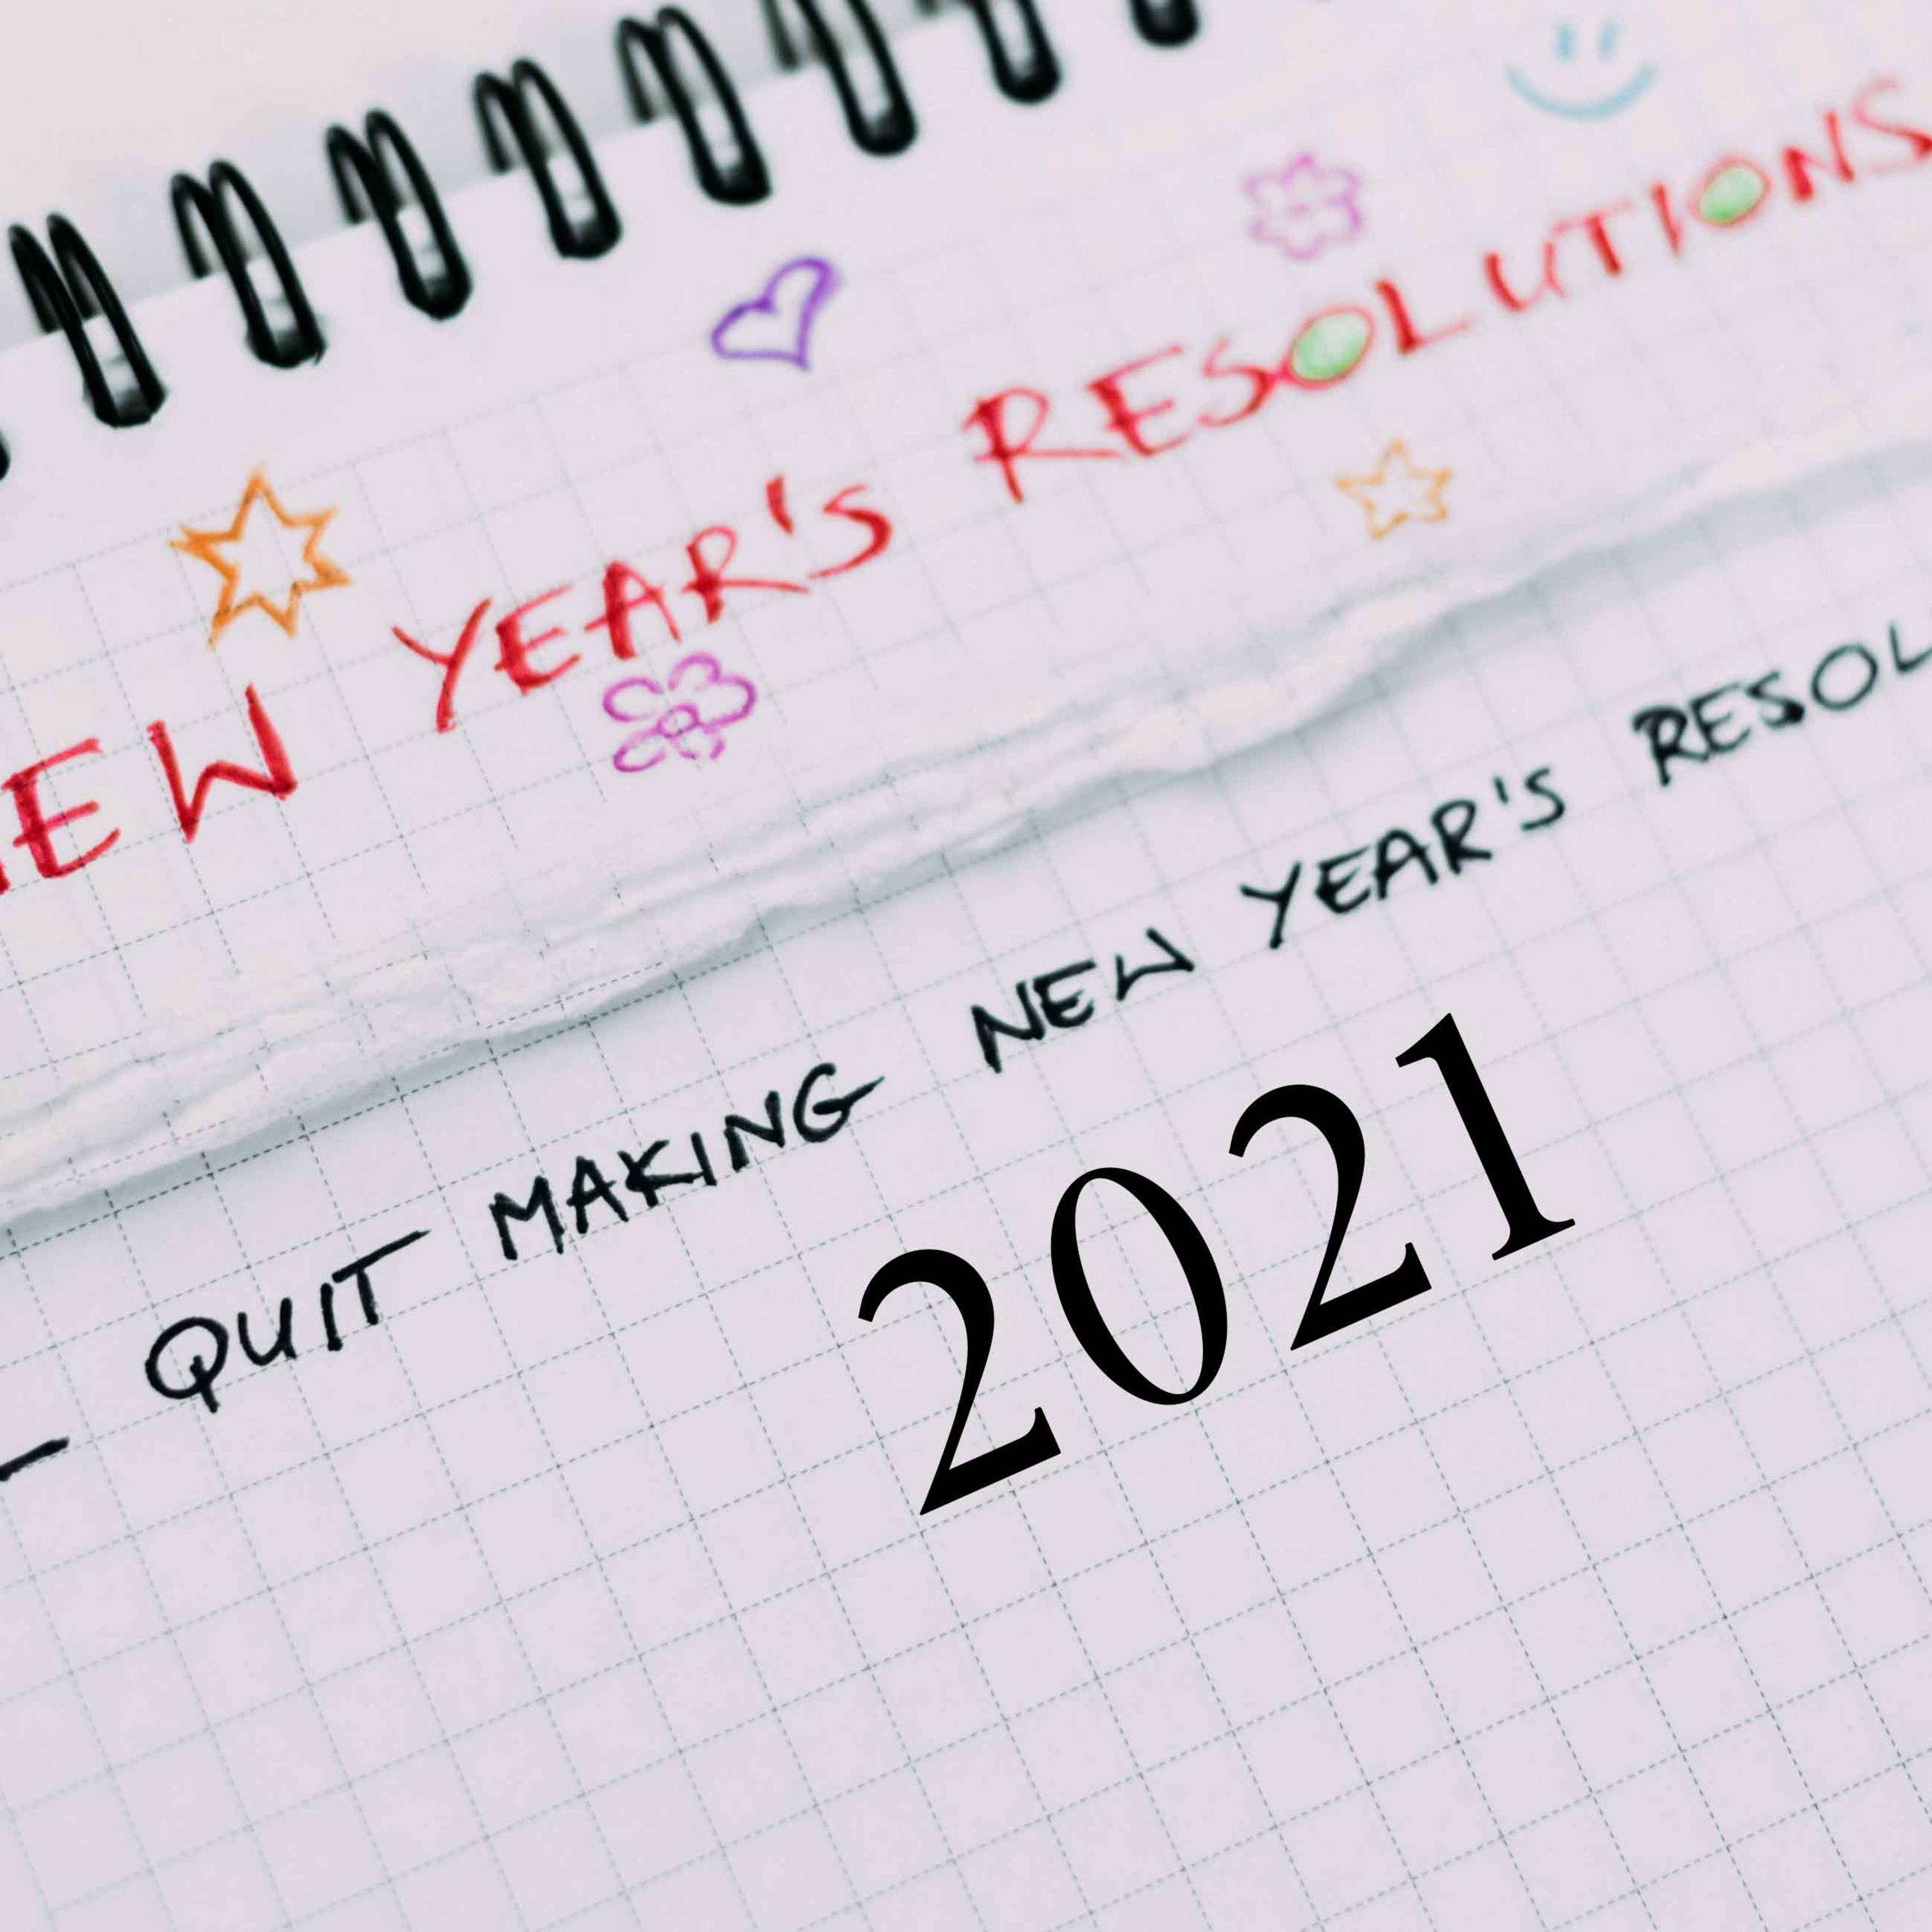 EW YEAR'S RESOLUTIONS
– QUIT MAKING NEW YEAR'S RESOL
2021